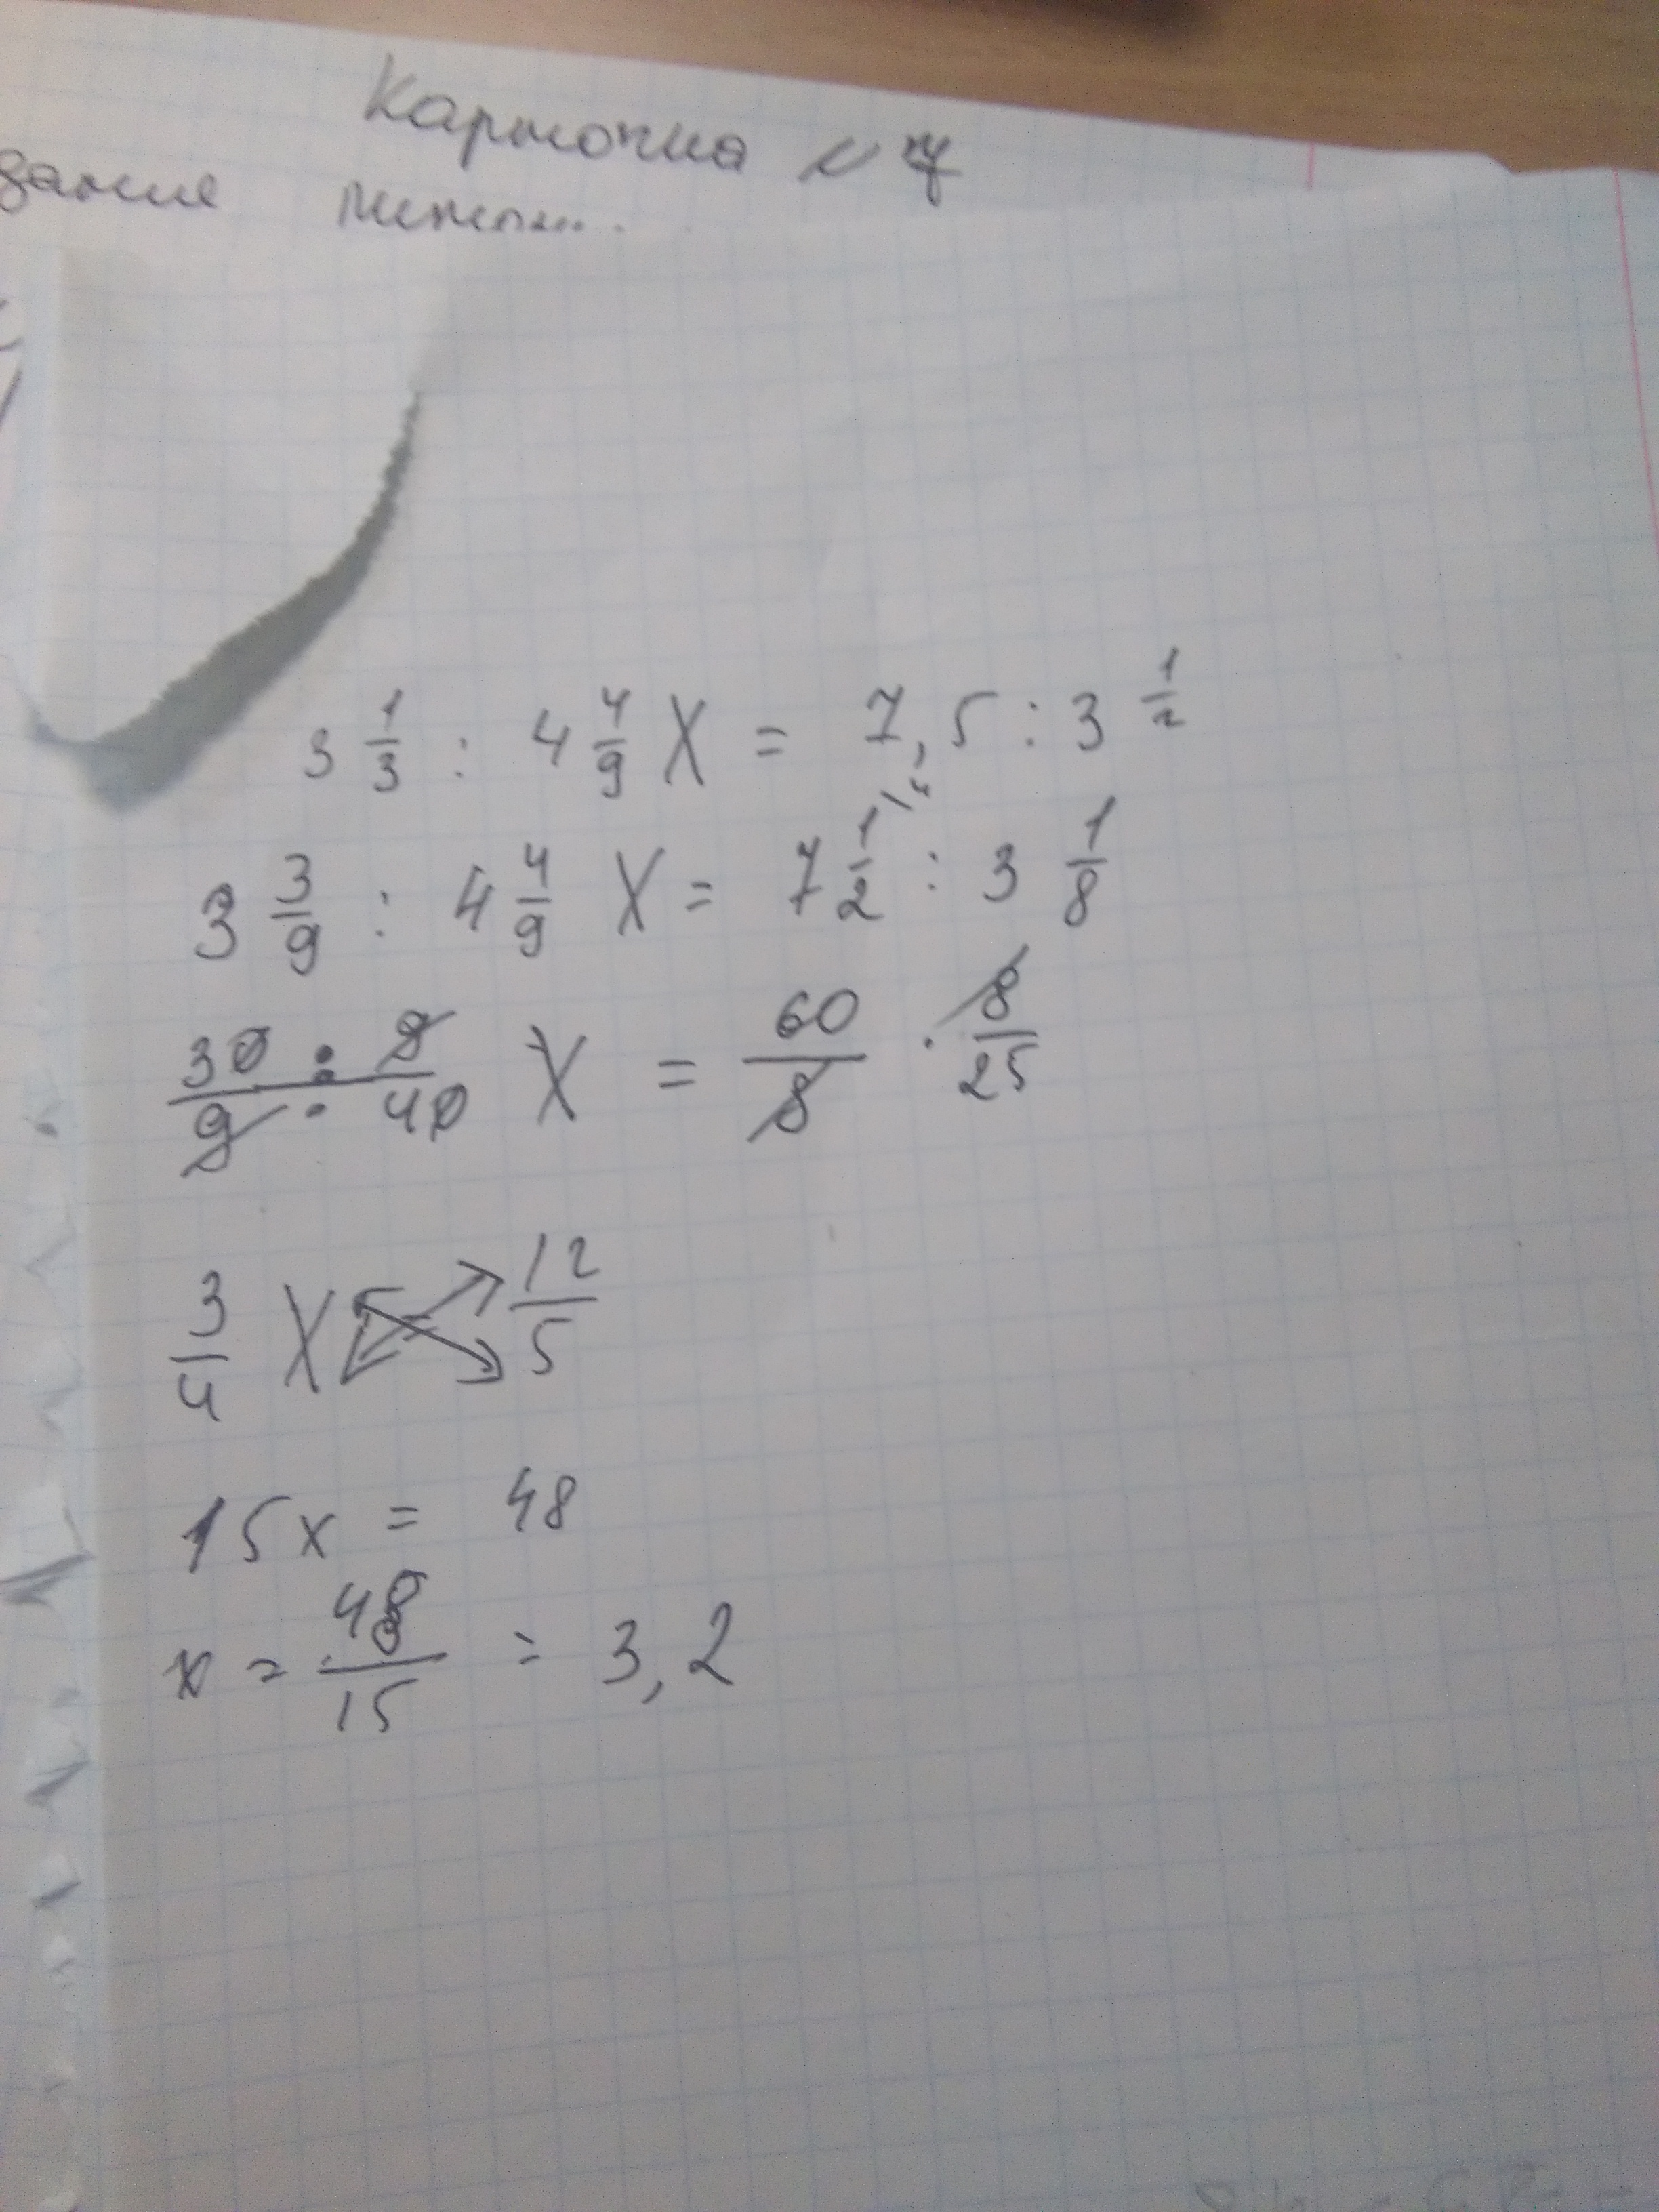 Карточка № 7
3 1/3 : 4 4/9 X = 7,5 : 3 1/2
3 3/9 : 4 4/9 X = 7 1/2 : 3 1/8
30/9 : 9/40 X = 60/8 · 8/25
3/4 X 12/5
15x = 48
x = 48/15 = 3,2